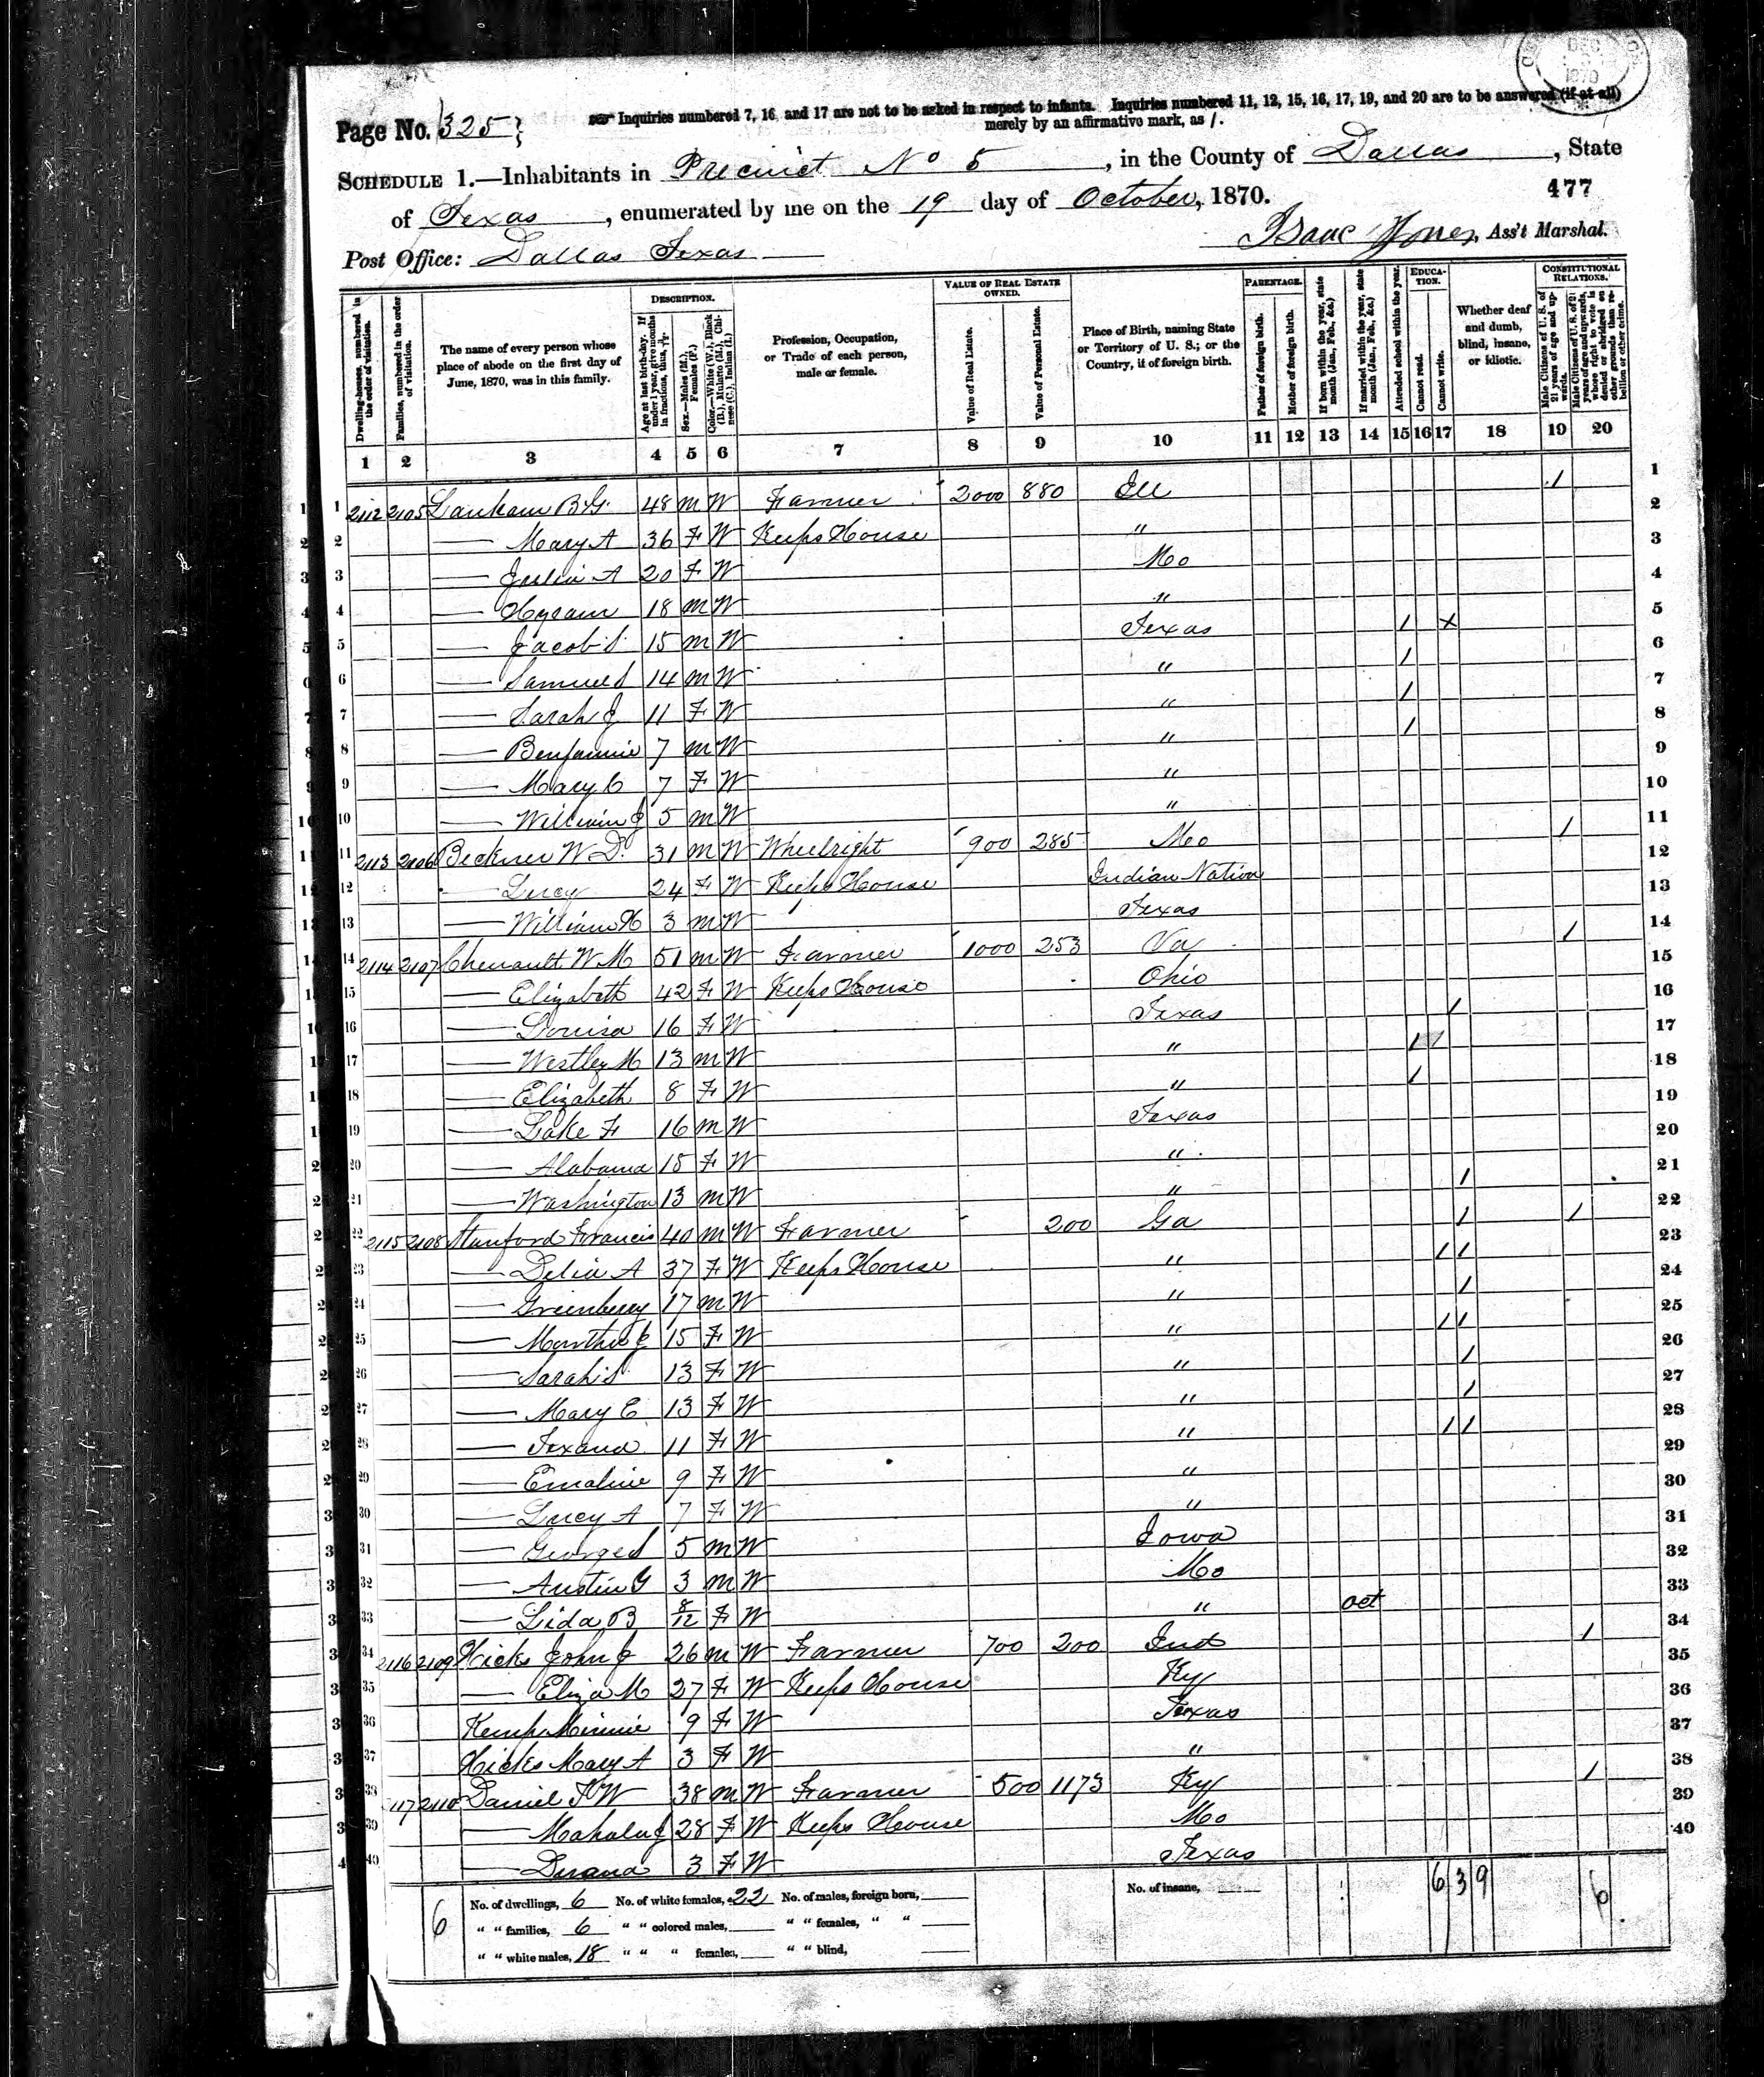 DEC
1870
Page No. 325
Inquiries numbered 7, 16, and 17 are not to be asked in respect to infants. Inquiries numbered 11, 12, 15, 16, 17, 19, and 20 are to be answered (if at all)
merely by an affirmative mark, as /.
SCHEDULE 1.—Inhabitants in Precinct No 5, in the County of Dallas, State
of Texas, enumerated by me on the 19 day of October, 1870.
477
Post Office: Dallas Texas
Isaac Jones, Ass't Marshal.
Dwelling-houses, numbered in the order of visitation.
Families, numbered in the order of visitation.
The name of every person whose place of abode on the first day of June, 1870, was in this family.
DESCRIPTION.
Age at last birth-day. If under 1 year, give months in fractions, thus,
Sex.—Males (M.), Females (F.)
Color.—White (W.), Black (B.), Mulatto (M.), Chinese (C.), Indian (I.)
Profession, Occupation, or Trade of each person, male or female.
VALUE OF REAL ESTATE OWNED.
Value of Real Estate.
Value of Personal Estate.
Place of Birth, naming State or Territory of U. S.; or the Country, if of foreign birth.
PARENTAGE.
Father of foreign birth.
Mother of foreign birth.
If born within the year, state month (Jan., Feb., &c.)
If married within the year, state month (Jan., Feb., &c.)
Attended school within the year.
EDUCATION.
Cannot read.
Cannot write.
Whether deaf and dumb, blind, insane, or idiotic.
CONSTITUTIONAL RELATIONS.
Male Citizens of U. S. of 21 years of age and upwards.
Male Citizens of U. S. of 21 years of age and upwards, whose right to vote is denied or abridged on other grounds than rebellion or other crime.
1 2 3 4 5 6 7 8 9 10 11 12 13 14 15 16 17 18 19 20
1 2112 2105 Lanham B.G. 48 m W Farmer 2000 880 Ill / 1
2 — Mary A 36 F W Keeps House " 2
3 — Julia A 20 F W Mo 3
4 — Hyram 18 m W " 4
5 — Jacob S 15 m W Texas / x 5
6 — Samuel S 14 m W " / 6
7 — Sarah J 11 F W " / 7
8 — Benjamin 7 m W " / 8
9 — Mary C 7 F W " 9
10 — William J 5 m W " 10
11 2113 2106 Beckner W.D. 31 m W Wheelright 900 285 Mo / 11
12 — Lucy 24 F W Keeps House Indian Nation 12
13 — William H 3 m W Texas 13
14 2114 2107 Chenault W M 51 m W Farmer 1000 253 Va / 14
15 — Elizabeth 42 F W Keeps House Ohio 15
16 — Louisa 16 F W Texas / 16
17 — Westley M 13 m W " / / 17
18 — Elizabeth 8 F W " / 18
19 — Lake F 16 m W Texas 19
20 — Alabama 15 F W " 20
21 — Washington 13 m W " / 21
22 2115 2108 Stanford Francis 40 m W Farmer 200 Ga / / 22
23 — Delia A 37 F W Keeps House " / / 23
24 — Greenberry 17 m W " / 24
25 — Martha J 15 F W " / / 25
26 — Sarah S 13 F W " / 26
27 — Mary E 13 F W " / 27
28 — Texana 11 F W " / / 28
29 — Emaline 9 F W " 29
30 — Lucy A 7 F W " 30
31 — George S 5 m W Iowa 31
32 — Austin G 3 m W Mo 32
33 — Lida B 8/12 F W " Oct 33
34 2116 2109 Hicks John J 26 m W Farmer 700 200 Ind / 34
35 — Eliza M 27 F W Keeps House Ky 35
36 Kemp Minnie 9 F W Texas 36
37 Hicks Mary A 3 F W " 37
38 2117 2110 Daniel F W 38 m W Farmer 500 1173 Ky / 38
39 — Mahala J 28 F W Keeps House Mo 39
40 — 3 F W Texas 40
6 No. of dwellings, 6 No. of white females, 22 No. of males, foreign born, No. of insane, 6 3 9 6
" " families, 6 " " colored males, " " females, " "
" " white males, 18 " " " females, " " blind,